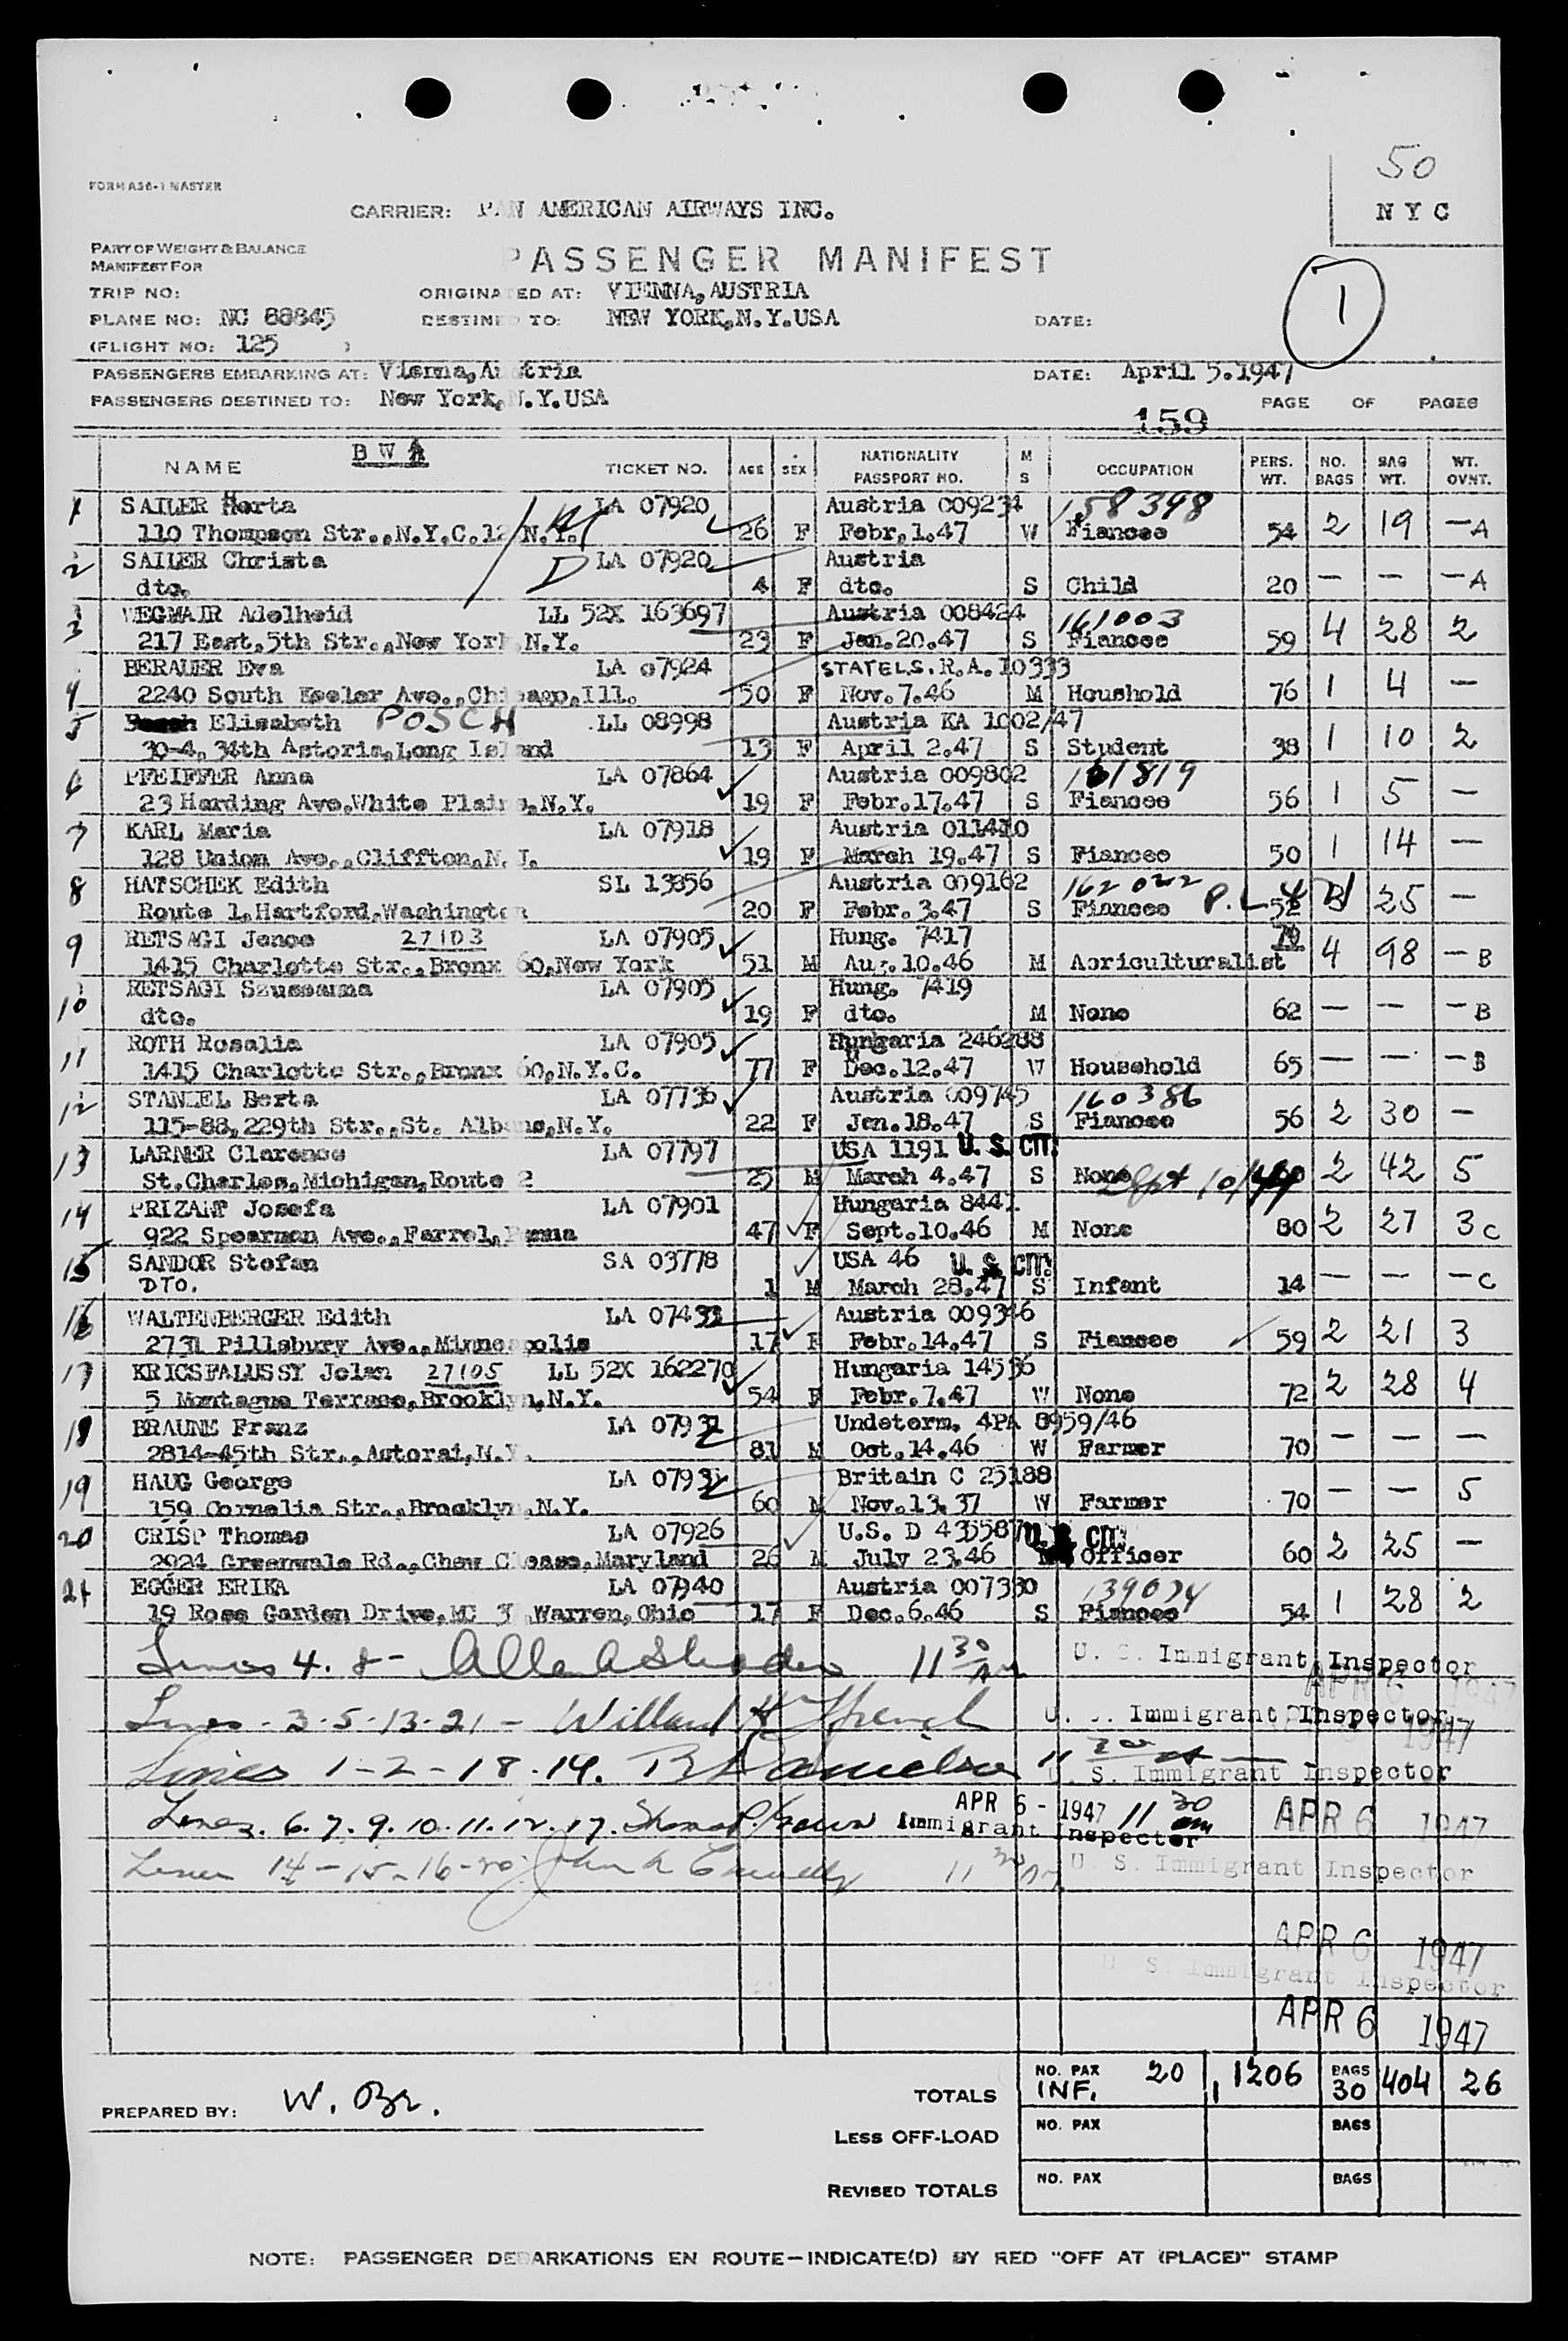 50
FORM A36-1 MASTER
CARRIER: PAN AMERICAN AIRWAYS INC.
N Y C
PART OF WEIGHT & BALANCE
MANIFEST FOR
PASSENGER MANIFEST
TRIP NO: ORIGINATED AT: VIENNA, AUSTRIA
1
PLANE NO: NC 88845 DESTINED TO: NEW YORK, N.Y. USA DATE:
(FLIGHT NO: 125 )
PASSENGERS EMBARKING AT: Vienna, Austria DATE: April 5.1947
PASSENGERS DESTINED TO: New York, N.Y. USA PAGE OF PAGES
159
B W A
NAME TICKET NO. AGE SEX NATIONALITY PASSPORT NO. M S OCCUPATION PERS. WT. NO. BAGS BAG WT. WT. OVNT.
1 SAILER Herta LA 07920 Austria 009234 158398
110 Thompson Str., N.Y.C. 12 N.Y. 26 F Febr. 1.47 W Fiancee 54 2 19 — A
2 SAILER Christa D LA 07920 Austria
dto. 4 F dto. S Child 20 — — — A
3 WEGMAIR Adelheid LL 52X 163697 Austria 008424 161003
217 East, 5th Str., New York N.Y. 23 F Jan. 20.47 S Fiancee 59 4 28 2
4 BERAUER Eva LA 07924 STATELS. R.A. 10333
2240 South Keeler Ave., Chicago, Ill. 50 F Nov. 7.46 M Houshold 76 1 4 —
5 Elisabeth POSCH LL 08998 Austria KA 1002/47
30-4, 34th Astoria, Long Island 13 F April 2.47 S Student 38 1 10 2
6 PFEIFFER Anna LA 07864 Austria 009802 161819
23 Harding Ave. White Plains, N.Y. 19 F Febr. 17.47 S Fiancee 56 1 5 —
7 KARL Maria LA 07918 Austria 011410
128 Union Ave., Cliffton, N.J. 19 F March 19.47 S Fiancee 50 1 14 —
8 HATSCHEK Edith SL 13856 Austria 009162 162022
Route 1, Hartford, Washington 20 F Febr. 3.47 S Fiancee P.L 52 25 —
9 RETSAGI Jenoe 27103 LA 07905 Hung. 7417
1415 Charlotte Str., Bronx 60, New York 51 M Aug. 10.46 M Aoriculturalist 4 98 — B
10 RETSAGI Szussanna LA 07905 Hung. 7419
dto. 19 F dto. M None 62 — — — B
11 ROTH Rosalia LA 07905 Hungaria 246288
1415 Charlotte Str., Bronx 60, N.Y.C. 77 F Dec. 12.47 W Household 65 — — — B
12 STANZEL Berta LA 07736 Austria 009745 160386
115-88, 229th Str., St. Albans, N.Y. 22 F Jan. 18.47 S Fiancee 56 2 30 —
13 LARNER Clarence LA 07797 USA 1191 U. S. CIT.
St. Charles, Michigan, Route 2 25 M March 4.47 S None 2 42 5
14 PRIZANT Josefa LA 07901 Hungaria 8441
922 Spearman Ave., Farrel, Penna 47 F Sept. 10.46 M None 80 2 27 3 C
15 SANDOR Stefan SA 03778 USA 46 U. S. CIT.
DTO. 1 M March 28.47 S Infant 14 — — — C
16 WALTENBERGER Edith LA 07432 Austria 009346
2731 Pillsbury Ave., Minneapolis 17 F Febr. 14.47 S Fiancee 59 2 21 3
17 KRICSFALUSSY Jolan 27105 LL 52X 162270 Hungaria 14536
5 Montague Terrase, Brooklyn, N.Y. 54 F Febr. 7.47 W None 72 2 28 4
18 BRAUNE Franz LA 07932 Undeterm. 4PA 8959/46
2814-45th Str., Astorai, N.Y. 81 M Oct. 14.46 W Farmer 70 — — —
19 HAUG George LA 07932 Britain C 25188
159 Cornelia Str., Brooklyn, N.Y. 60 M Nov. 13.37 W Farmer 70 — — 5
20 CRISP Thomas LA 07926 U.S. D 435587 U. S. CIT.
2924 Greenvale Rd., Chew Chease, Maryland 26 M July 23.46 Officer 60 2 25 —
21 EGGER ERIKA LA 07940 Austria 007330 139074
19 Rose Garden Drive, MC Warren, Ohio 17 F Dec. 6.46 S Fiancee 54 1 28 2
Lines 4. 8 - 11 30 U. S. Immigrant Inspector
APR 6 1947
Lines - 3 - 5 - 13 - 21 - Willard H U. S. Immigrant Inspector
1947
Lines 1 - 2 - 18 - 19. U. S. Immigrant Inspector
Lines. 6. 7. 9. 10. 11. 12. 17. APR 6 - 1947 11 30 am APR 6 1947
Immigrant Inspector
Lines 14 - 15 - 16 - 20 John 11 30 U. S. Immigrant Inspector
APR 6 1947
U. S. Immigrant Inspector
APR 6 1947
PREPARED BY: TOTALS NO. PAX 20 1206 BAGS 30 404 26
INF. 1
LESS OFF-LOAD NO. PAX BAGS
REVISED TOTALS NO. PAX BAGS
NOTE: PASSENGER DEBARKATIONS EN ROUTE—INDICATE(D) BY RED "OFF AT (PLACE)" STAMP